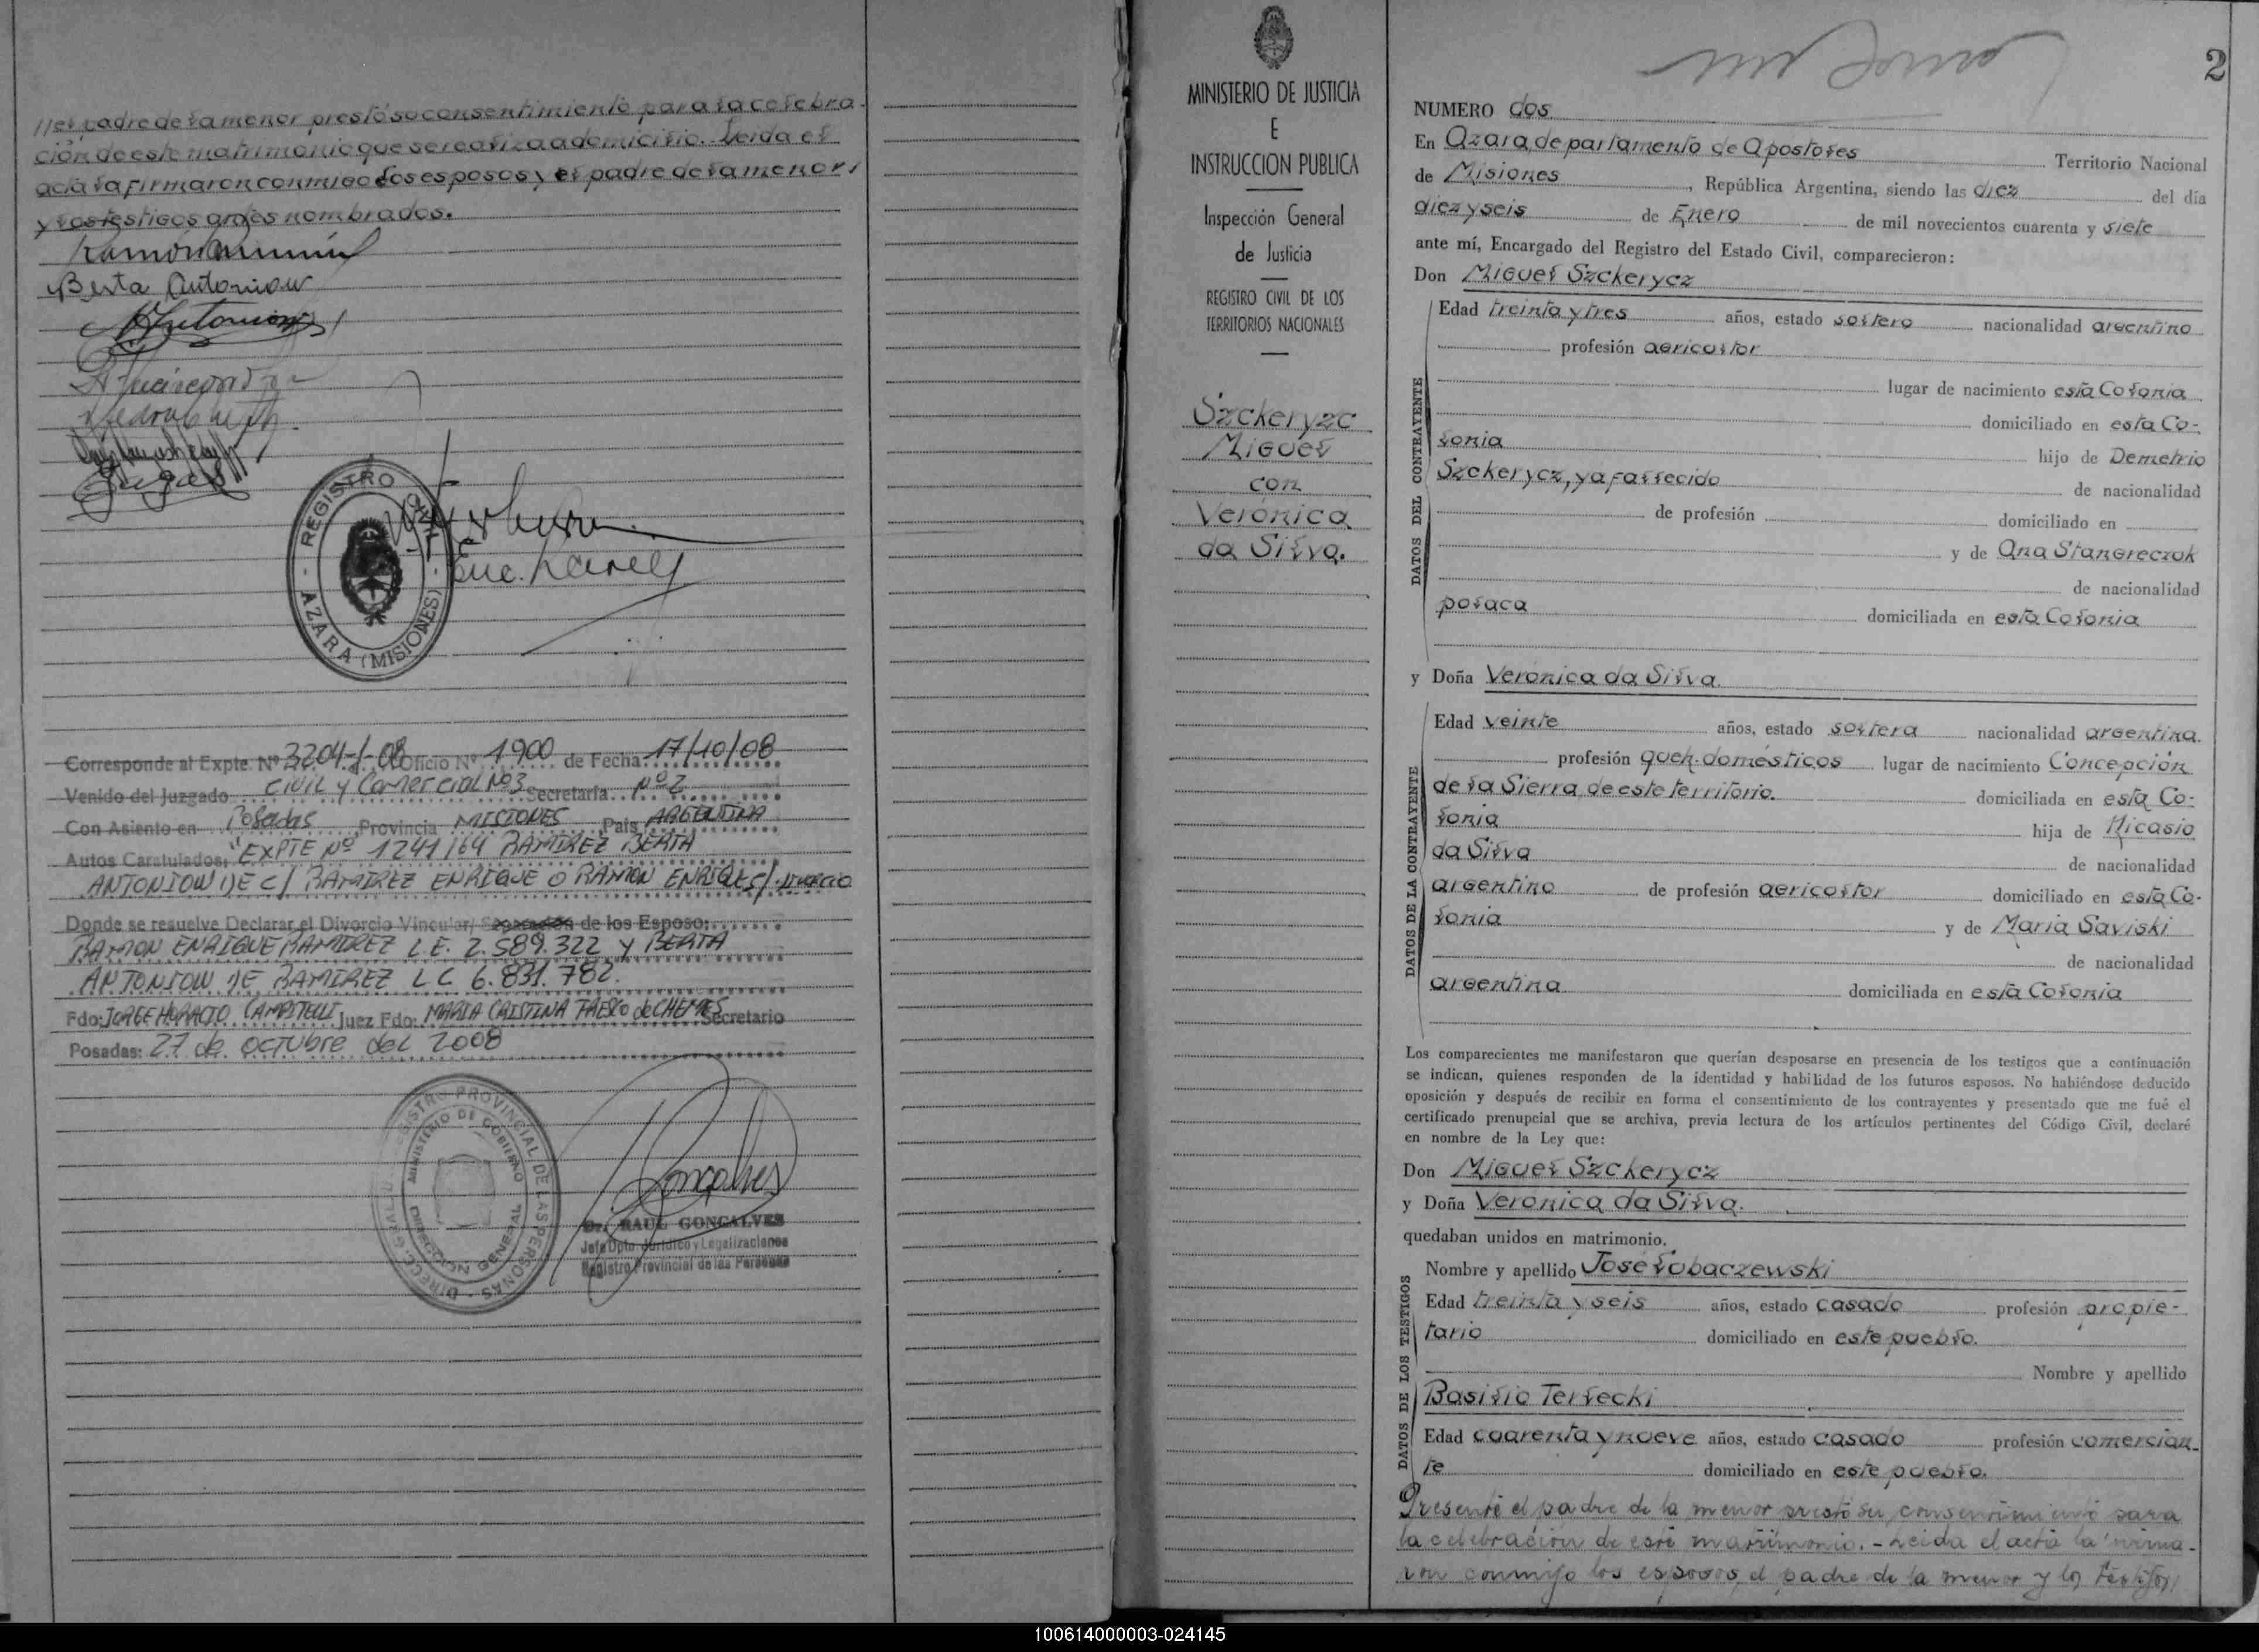 //el padre de la menor prestó so consentimiento para la celebra-
ción de este matrimonio que se realiza a domicilio.. Leida el
acta la firmaron conmigo los esposos y el padre de la menor,
y los testigos antes nombrados.
Berta Antoniow
REGISTRO CIVIL
- AZARA (MISIONES) -
Corresponde al Expte. Nº 3204-/-08 Oficio Nº 1900 de Fecha 17/10/08
Venido del Juzgado CIVIL y COMERCIAL Nº3 Secretaría Nº2
Con Asiento en Posadas Provincia MISIONES País ARGENTINA
Autos Caratulados: "EXPTE Nº 1241/64 RAMIREZ BERTA
ANTONIOW DE C/ RAMIREZ ENRIQUE O RAMON ENRIQUE S/ DIVORCIO
Donde se resuelve Declarar el Divorcio Vincular/ Separación de los Esposo:
RAMON ENRIQUE RAMIREZ L.E. 2.589.322 Y BERTA
ANTONIOW DE RAMIREZ L C 6.831.782.
Fdo: JORGE HORACIO CAMPITELLI Juez Fdo: MARIA CRISTINA de CHEMES Secretario
Posadas: 27 de octubre del 2008
REGISTRO PROVINCIAL DE LAS PERSONAS
MINISTERIO DE GOBIERNO
DIRECCION GENERAL
Goncalves
Dr. RAUL GONCALVES
Jefe Dpto. Jurídico y Legalizaciones
Registro Provincial de las Personas
MINISTERIO DE JUSTICIA
E
INSTRUCCION PUBLICA
Inspección General
de Justicia
REGISTRO CIVIL DE LOS
TERRITORIOS NACIONALES
Szckeryzc
Miguel
con
Verónica
da Silva.
2
NUMERO dos
En Azara, departamento de Apostoles Territorio Nacional
de Misiones, República Argentina, siendo las diez del día
diez y seis de Enero de mil novecientos cuarenta y siete
ante mí, Encargado del Registro del Estado Civil, comparecieron:
Don Miguel Szckerycz
DATOS DEL CONTRAYENTE
Edad treinta y tres años, estado soltero nacionalidad argentino
profesión agricoltor
lugar de nacimiento esta Colonia
domiciliado en esta Co-
lonia hijo de Demetrio
Szckerycz, ya fallecido de nacionalidad
de profesión domiciliado en
y de Ana Stangreczok
de nacionalidad
polaca domiciliada en esta Colonia
y Doña Verónica da Silva.
DATOS DE LA CONTRAYENTE
Edad veinte años, estado soltera nacionalidad argentina.
profesión queh. domésticos lugar de nacimiento Concepción
de la Sierra, de este territorio. domiciliada en esta Co-
lonia hija de Nicasio
da Silva de nacionalidad
argentino de profesión agricoltor domiciliado en esta Co-
lonia y de Maria Saviski
de nacionalidad
argentina domiciliada en esta Colonia
Los comparecientes me manifestaron que querían desposarse en presencia de los testigos que a continuación
se indican, quienes responden de la identidad y habilidad de los futuros esposos. No habiéndose deducido
oposición y después de recibir en forma el consentimiento de los contrayentes y presentado que me fué el
certificado prenupcial que se archiva, previa lectura de los artículos pertinentes del Código Civil, declaré
en nombre de la Ley que:
Don Miguel Szckerycz
y Doña Verónica da Silva.
quedaban unidos en matrimonio.
DATOS DE LOS TESTIGOS
Nombre y apellido José Lobaczewski
Edad treinta y seis años, estado casado profesión propie-
tario domiciliado en este pueblo.
Nombre y apellido
Basilio Terlecki
Edad cuarenta y nueve años, estado casado profesión comercian-
te domiciliado en este pueblo.
Presente el padre de la menor prestó su consentimiento para
la celebración de este matrimonio. - Leida el acta la firma-
ron conmigo los esposos, el padre de la menor y los testigos//
100614000003-024145